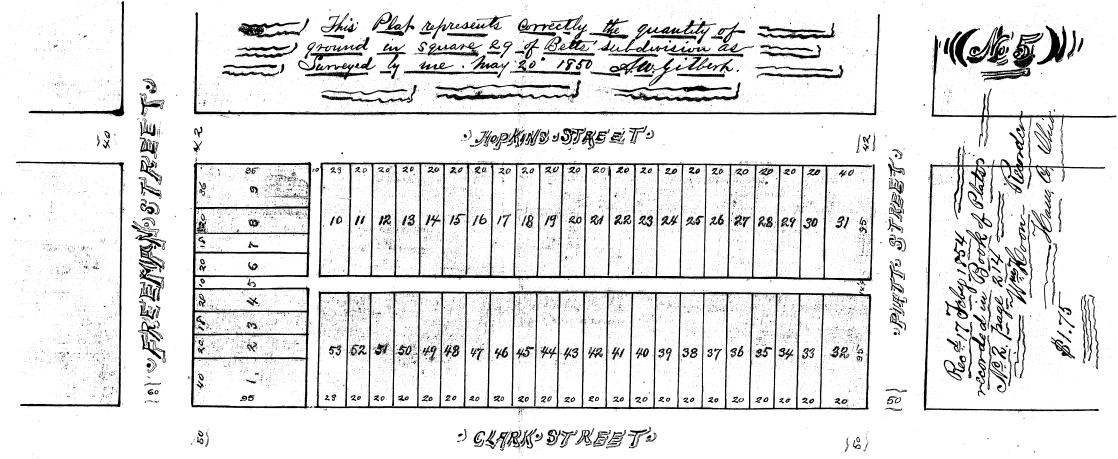 This Plat represents correctly the quantity of
ground in square 29 of Betts' subdivision as
Surveyed by me. May 20th 1850 A.W. Gilbert.
No 5
HOPKINS STREET
FREEMAN STREET
PLATT STREET
CLARK STREET
40
42
42
50
50
95 10 23 20 20 20 20 20 20 20 20 20 20 20 20 20 20 20 20 20 20 20 20 40
9 8 7 6 5 4 3 2 1
10 11 12 13 14 15 16 17 18 19 20 21 22 23 24 25 26 27 28 29 30 31
95
53 52 51 50 49 48 47 46 45 44 43 42 41 40 39 38 37 36 35 34 33 32
95
36 20 18 20 10 20 18 20 40
95 23 20 20 20 20 20 20 20 20 20 20 20 20 20 20 20 20 20 20 20 20 20
Recd. 17 Feby 1854
recorded in Book of Plats
No 2. Page 214
Wm Recorder
Ham Co Ohio
$1.75